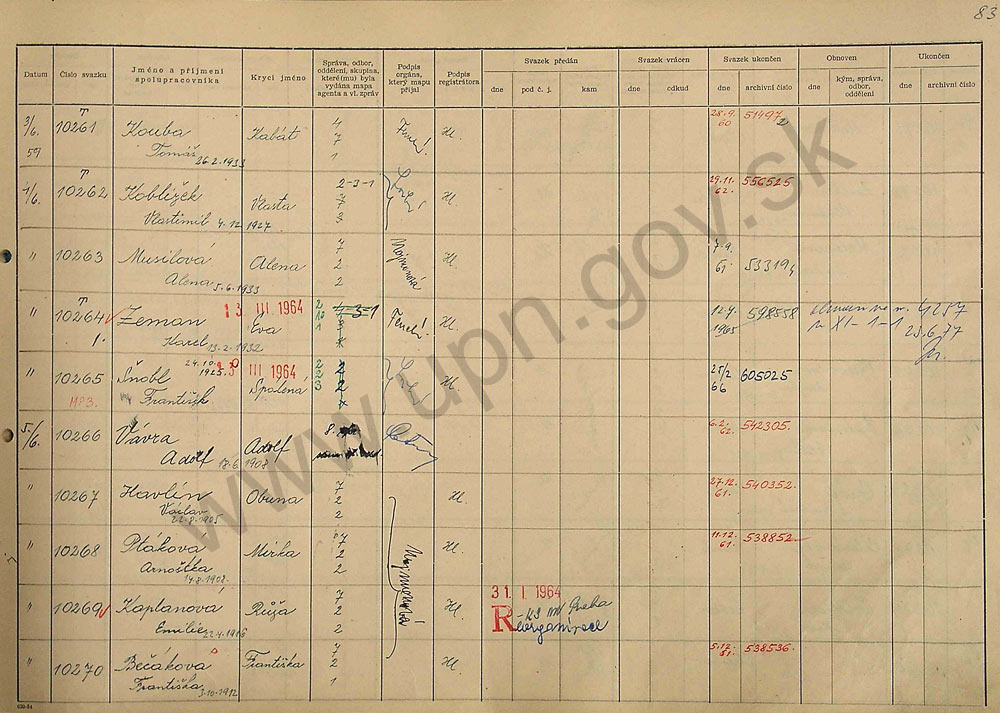 83
Datum
Číslo svazku
Jméno a příjmení spolupracovníka
Krycí jméno
Správa, odbor, oddělení, skupina, které(mu) byla vydána mapa agenta a vl. zpráv
Podpis orgánu, který mapu přijal
Podpis registrátora
Svazek předán
Svazek vrácen
Svazek ukončen
Obnoven
Ukončen
dne
pod č. j.
kam
dne
odkud
dne
archivní číslo
dne
kým, správa, odbor, oddělení
dne
archivní číslo
3/6. 59 T 10261 Kouba Kabát 4 7 1 28.9. 60 51497
Tomáš 26.2.1933
4/6. T 10262 Koblížek Vlasta 2-3-1 7 3 29.11. 62. 556525
Vlastimil 4.12.1927
" 10263 Musilová Alena 7 2 2 Mojmírová 7.9. 61. 53319
Alena 5.6.1933
" T 10264 Zeman 13 III 1964 Eva 2 10 1 12.4. 1965 598558 4257
1. Karel 13.2.1932 XI-1-1 25.6.77
" 10265 Šnobl 24.10. 1925 III 1964 Spolená 2 2 3 25/2 66 605025
František
5/6. 10266 Vávra Adolf 8. 6.2. 62. 542305.
Adolf 18.6.1908
" 10267 Havlín Obuna 7 2 2 27.12. 61. 540352.
Václav 22.8.1905
" 10268 Ptáková Mirka 7 2 2 Mojmírová 11.12. 61. 538852
Arnoštka 14.8.1902
" 10269 Kaplanová Růža 7 2 2 31 I 1964
Emilie 22.4.1916 R - KS MV Praha
reorganizace
" 10270 Bečáková Františka 7 2 1 5.12. 61. 538536.
Františka 3.10.1912
www.upn.gov.sk